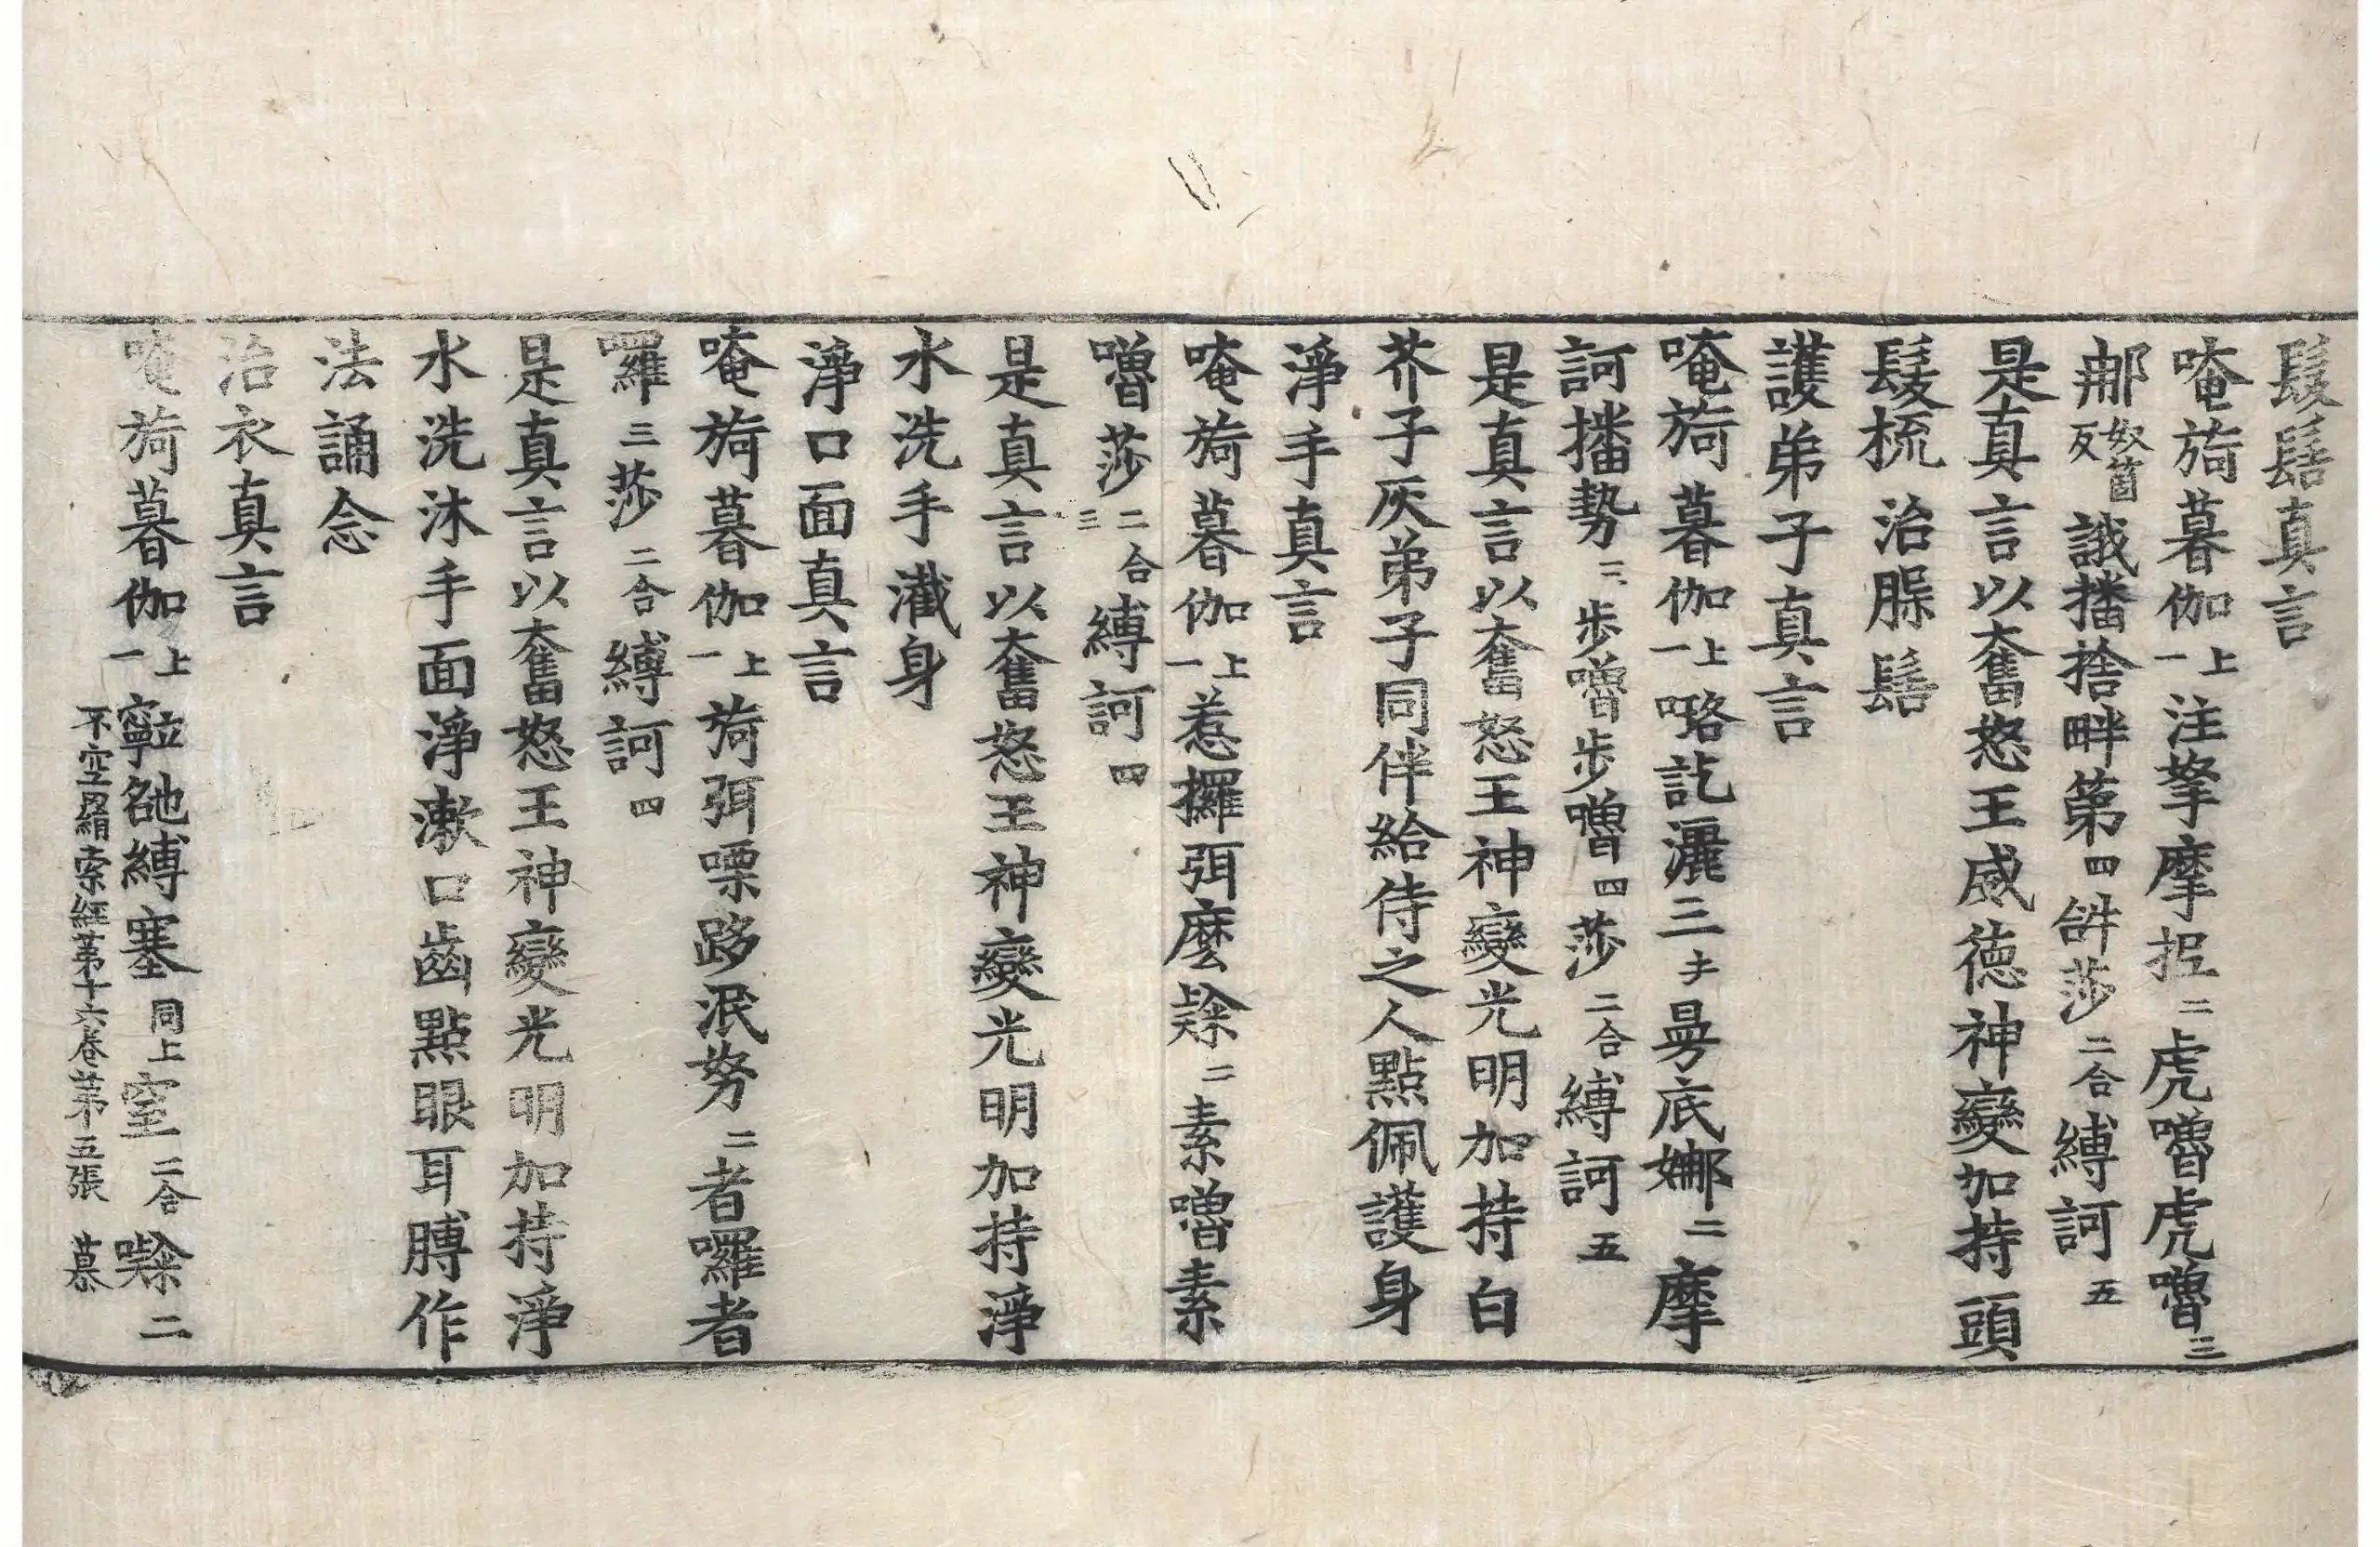 髮髻真言
唵旖暮伽上一注拏摩抳二虎嚕虎嚕三
那奴箇反誐播捨畔第四𤙖莎二合縛訶五
是真言以奮怒王威德神變加持頭
髮梳治䐉髻
護弟子真言
唵旖暮伽上一㗉訖灑三曼底娜二摩
訶播勢三步嚕步嚕四莎二合縛訶五
是真言以奮怒王神變光明加持白
芥子灰弟子同伴給侍之人點佩護身
淨手真言
唵旖暮伽上一惹攞弭麼㘑二素嚕素
嚕莎二合三縛訶四
是真言以奮怒王神變光明加持淨
水洗手瀐身
淨口面真言
唵旖暮伽上一旖弭㗚跢泯努二者囉者
囉三莎二合縛訶四
是真言以奮怒王神變光明加持淨
水洗沐手面淨漱口齒點眼耳膊作
法誦念
治衣真言
唵旖暮伽上一縛塞同上窒二合㘑二
不空羂索經第十六卷第五張 慕